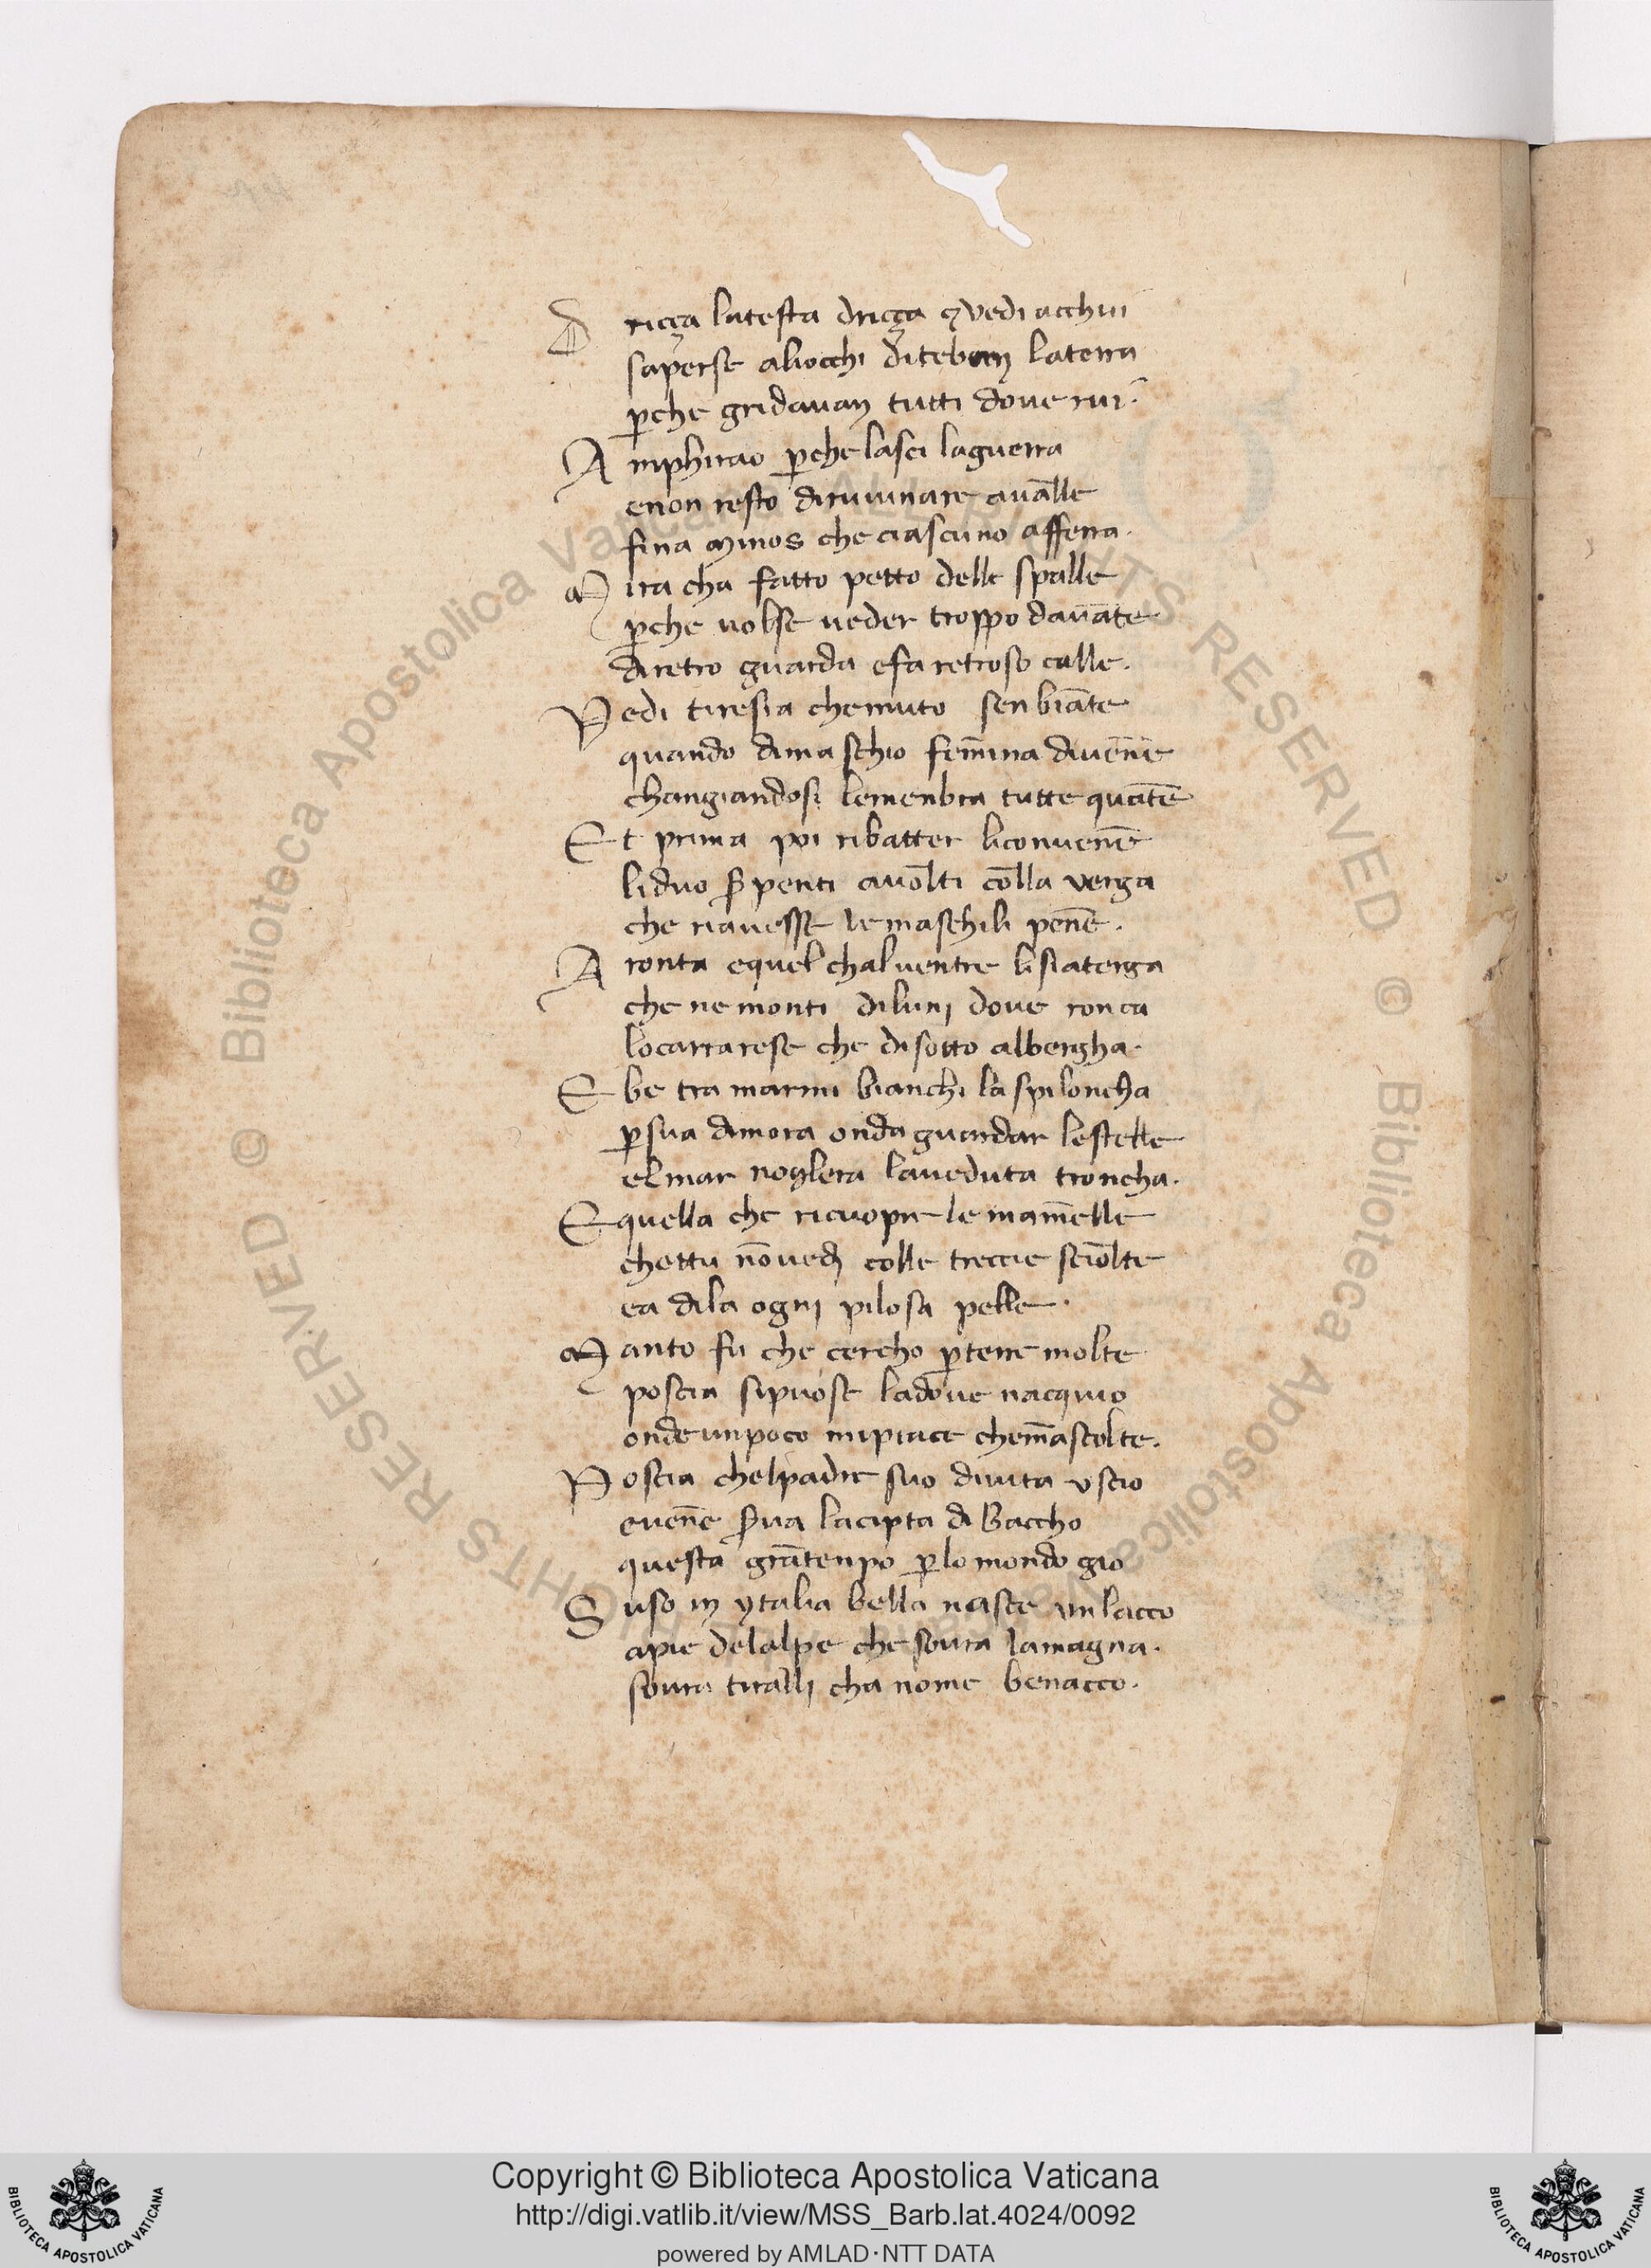 D riçça latesta driçça ⁊ vedi acchui
saperse aliocchi diteban laterra
ꝑche gridavan tutti dove rui.
A mphirao ꝑche lasci laguerra
enon resto diruuinare avalle
fina minos che ciascuno afferra.
M ira cha fatto petto delle spalle
ꝑche volse veder troppo davāte
diretro guarda efa retroso calle.
V edi tiresia chemuto senbiāte
quando dimaschio fem̄ina divēne
changiandosi lemenbra tutte quātē
E t prima poi ribatter liconvenē
liduo s̄penti avolti cōlla verga
che riavesse lemaschili penē.
A ronta equel chalventre lisiaterga
che ne monti diluni dove ronca
locarrarese che disotto albergha.
E be tra marmi bianchi la spiloncha
ꝑsua dimora onda guardar lestelle
elmar noglera laveduta troncha.
E quella che ricuopre le mam̄elle
chettu nōvedi colle treccie sciolte
ea dila ogni pilosa pelle.
M anto fu che cercho ꝑterre molte
poscia sipuose ladove nacquio
onde unpoco mipiace chem̄ascolte.
P oscia chelpadre suo divita uscio
evenē s̄va lacipta di Baccho
questa grātenpo ꝑlo mondo gio
S uso in ytalia bella nasce un lacco
apie delalpe che soura lamagna.
soura tiralli cha nome benacco.
Copyright © Biblioteca Apostolica Vaticana
http://digi.vatlib.it/view/MSS_Barb.lat.4024/0092
powered by AMLAD·NTT DATA
BIBLIOTECA APOSTOLICA VATICANA
BIBLIOTECA APOSTOLICA VATICANA